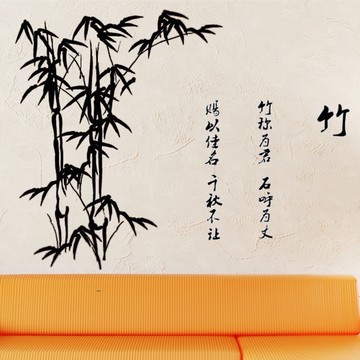 竹
竹称为君 石呼为丈
赐以佳名 千秋不让